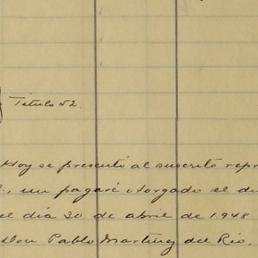 Titulo 52.
Hoy se presentó al suscrito repr
un pagaré otorgado el d
el día 20 de abril de 1948
don Pablo Martinez del Rio,